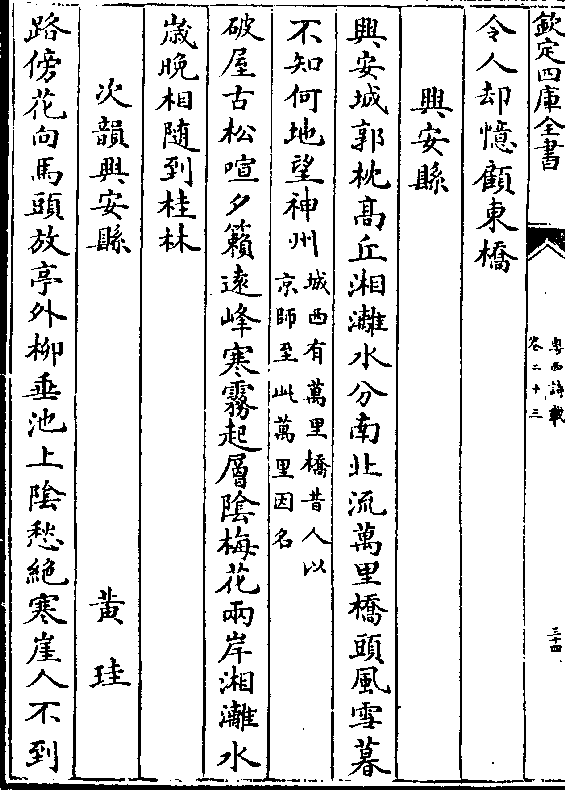 欽定四庫全書
粤西詩載
卷二十三
三十四
令人却憶顧東橋
興安縣
興安城郭枕髙丘湘灕水分南北流萬里橋頭風雪暮
不知何地望神州
城西有萬里橋昔人以
京師至此萬里因名
破屋古松喧夕籟逺峰寒霧起層陰梅花兩岸湘灕水
歳晩相隨到桂林
次韻興安縣
黄珪
路傍花向馬頭放亭外柳垂池上陰愁絶寒崖人不到